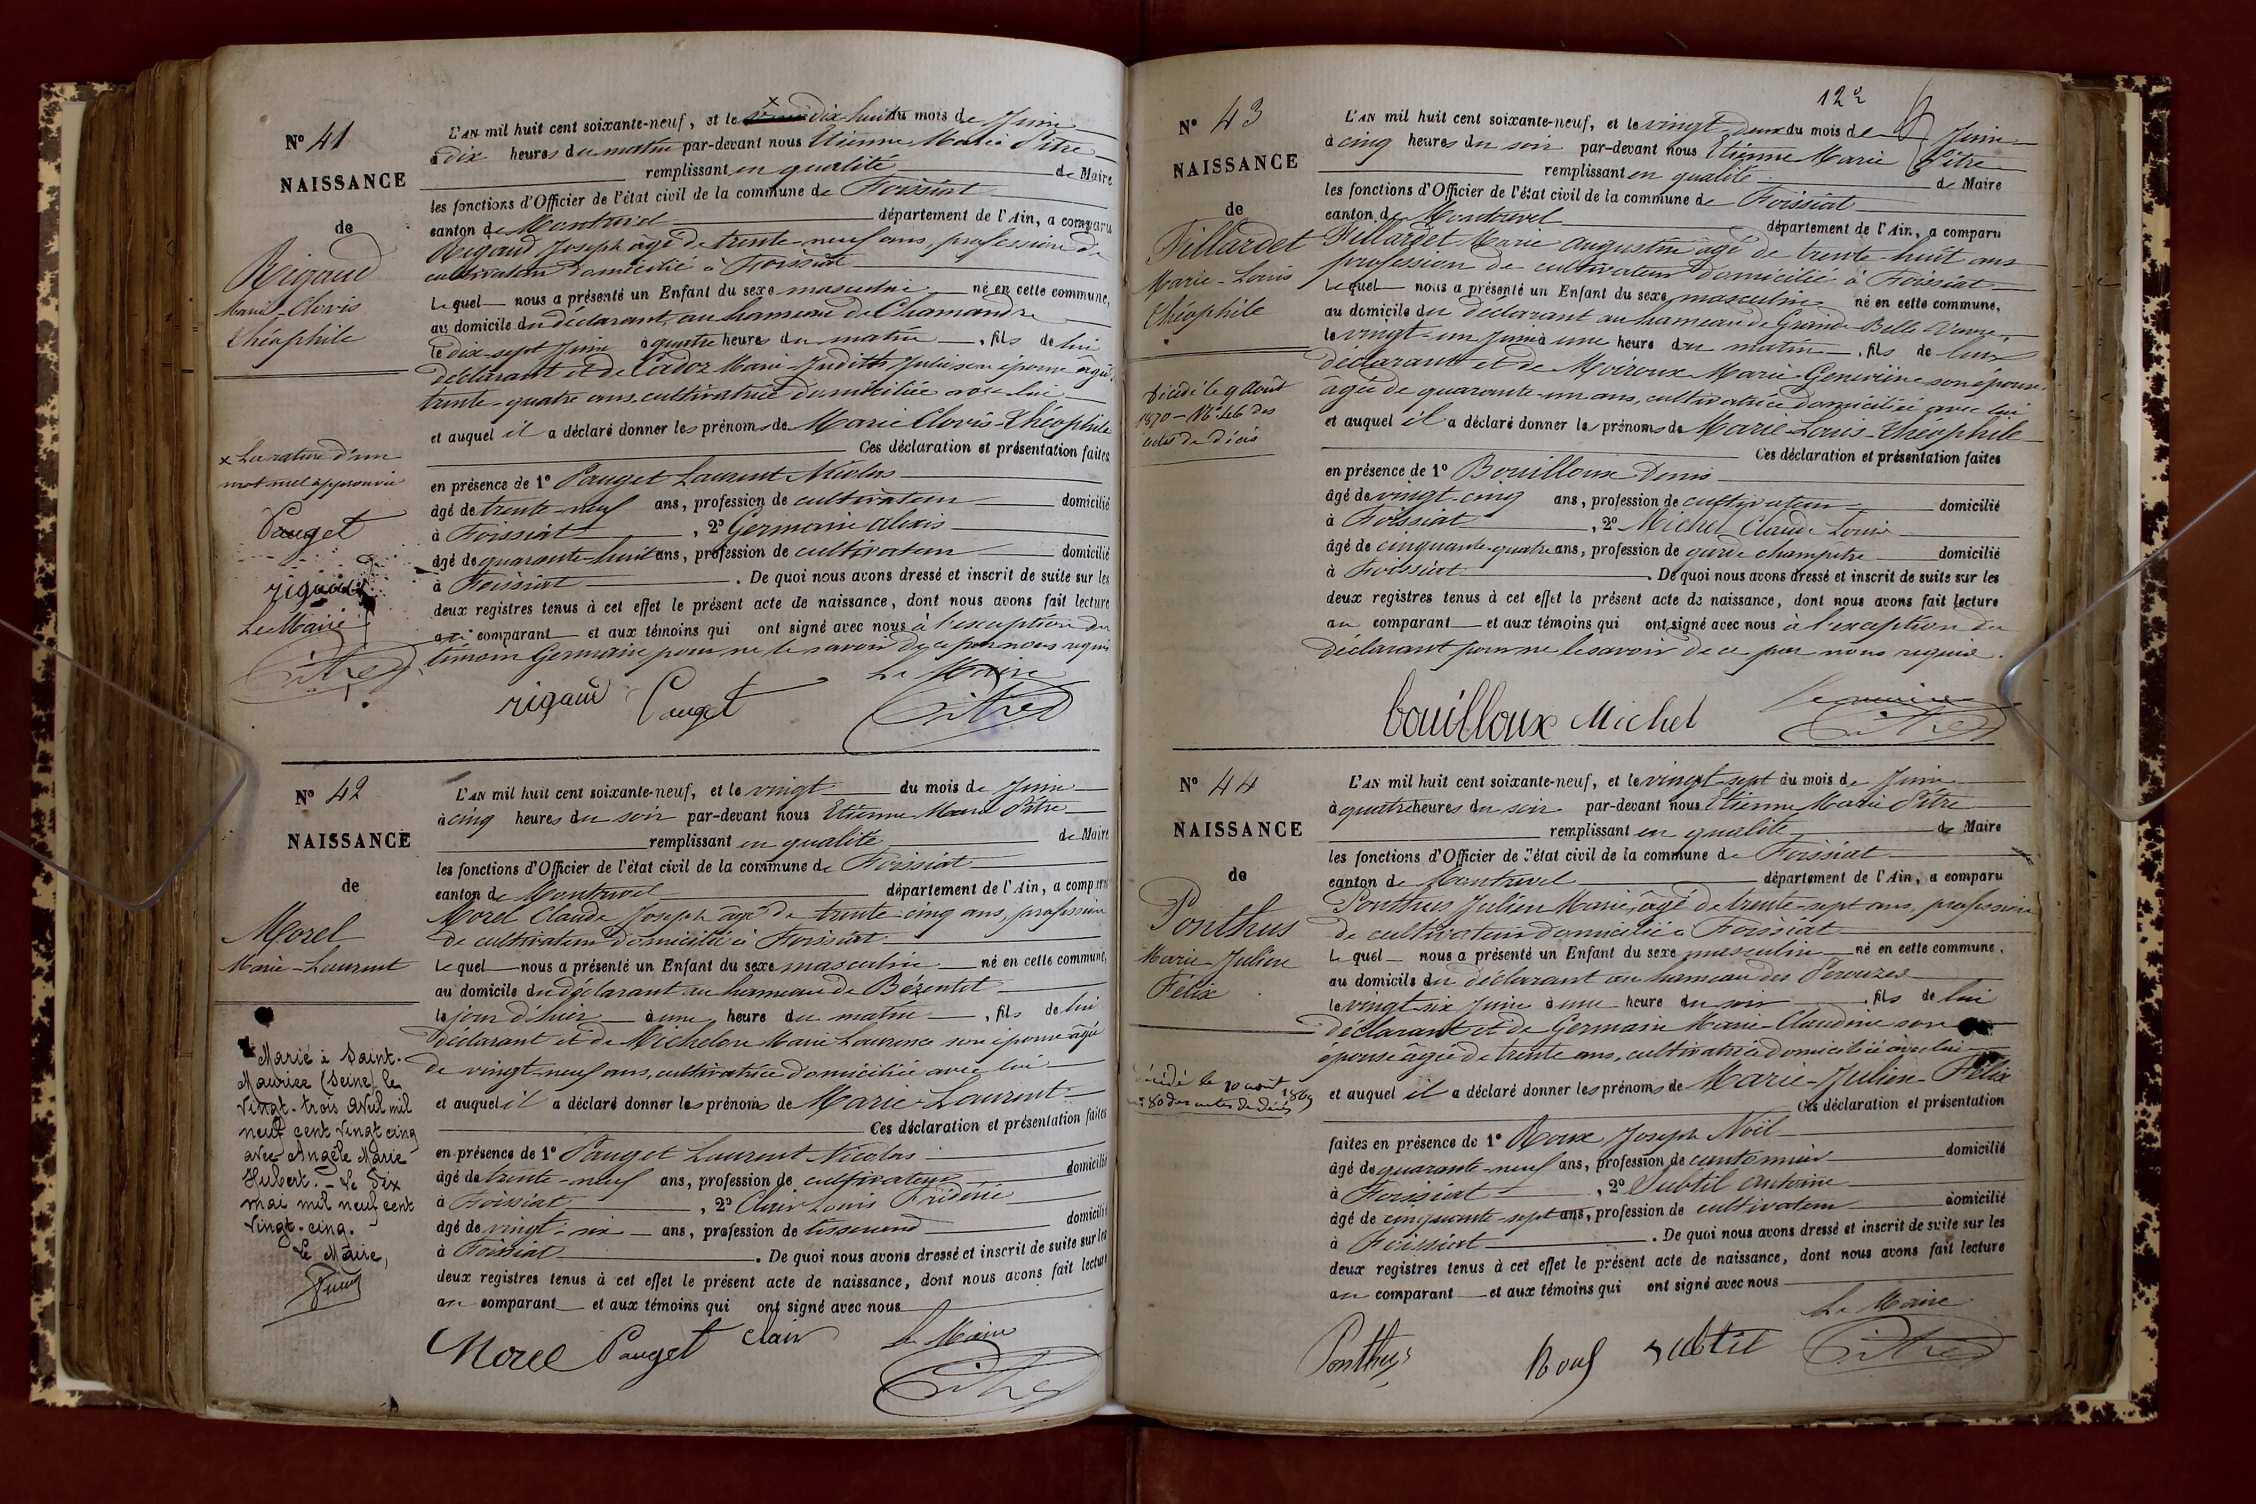 N° 41
NAISSANCE
de
Rigaud
Marie-Clovis
Théophile
x La rature d'un
mot nul approuvée
Pauget
rigaud
Le Maire
Pitre
L'AN mil huit cent soixante-neuf, et le x dix huit du mois de Juin
à dix heures du matin par-devant nous Etienne Marie Pitre
remplissant en qualité de Maire
les fonctions d'Officier de l'état civil de la commune de Foissiat
canton de Montrevel département de l'Ain, a comparu
Rigaud Joseph âgé de trente-neuf ans, profession de
cultivateur domicilié à Foissiat
lequel nous a présenté un Enfant du sexe masculin né en cette commune,
au domicile du déclarant, au hameau de Chamandre
le dix-sept Juin à quatre heures du matin, fils de lui
déclarant et de Cador Marie-Judith Julie son épouse âgée
trente-quatre ans, cultivatrice domiciliée avec lui
et auquel il a déclaré donner les prénoms de Marie Clovis-Théophile
Ces déclaration et présentation faites
en présence de 1° Pauget Laurent Nicolas
âgé de trente-neuf ans, profession de cultivateur domicilié
à Foissiat, 2° Germain Alexis
âgé de quarante-huit ans, profession de cultivateur domicilié
à Foissiat. De quoi nous avons dressé et inscrit de suite sur les
deux registres tenus à cet effet le présent acte de naissance, dont nous avons fait lecture
au comparant et aux témoins qui ont signé avec nous à l'exception du
témoin Germain pour ne le savoir de ce par nous requis
rigaud Pauget Le Maire
Pitre
N° 42
NAISSANCE
de
Morel
Marie-Laurent
Marié à Saint-
Maurice (Seine) le
vingt-trois avril mil
neuf cent vingt cinq
avec Angèle Marie
Hubert. - Le dix
mai mil neuf cent
vingt-cinq.
Le Maire,
L'AN mil huit cent soixante-neuf, et le vingt du mois de Juin
à cinq heures du soir par-devant nous Etienne Marie Pitre
remplissant en qualité de Maire
les fonctions d'Officier de l'état civil de la commune de Foissiat
canton de Montrevel département de l'Ain, a comparu
Morel Claude Joseph âgé de trente-cinq ans, profession
de cultivateur domicilié à Foissiat
lequel nous a présenté un Enfant du sexe masculin né en cette commune,
au domicile du déclarant au hameau de Bézentet
le jour d'hier à une heure du matin, fils de lui
déclarant et de Michelon Marie Laurence son épouse âgée
de vingt-neuf ans, cultivatrice domiciliée avec lui
et auquel il a déclaré donner les prénoms de Marie-Laurent
Ces déclaration et présentation faites
en présence de 1° Pauget Laurent Nicolas
âgé de trente-neuf ans, profession de cultivateur domicilié
à Foissiat, 2° Clair Louis Frédéric
âgé de vingt-six ans, profession de tisserand domicilié
à Foissiat. De quoi nous avons dressé et inscrit de suite sur les
deux registres tenus à cet effet le présent acte de naissance, dont nous avons fait lecture
au comparant et aux témoins qui ont signé avec nous
Morel Pauget clair Le Maire
Pitre
12
N° 43
NAISSANCE
de
Fillardet
Marie-Louis
Théophile
Décédé le 9 Août
1870 - N° 46 des
actes de décès
L'AN mil huit cent soixante-neuf, et le vingt-deux du mois de Juin
à cinq heures du soir par-devant nous Etienne Marie Pitre
remplissant en qualité de Maire
les fonctions d'Officier de l'état civil de la commune de Foissiat
canton de Montrevel département de l'Ain, a comparu
Fillardet Marie Augustin âgé de trente-huit ans
profession de cultivateur domicilié à Foissiat
lequel nous a présenté un Enfant du sexe masculin né en cette commune,
au domicile du déclarant au hameau de Grande Belle Vavre
le vingt-un Juin à une heure du matin, fils de lui
déclarant et de Moiroux Marie Geneviève son épouse
âgée de quarante-un ans, cultivatrice domiciliée avec lui
et auquel il a déclaré donner les prénoms de Marie-Louis-Théophile
Ces déclaration et présentation faites
en présence de 1° Bouilloux Denis
âgé de vingt-cinq ans, profession de cultivateur domicilié
à Foissiat, 2° Michel Claude Louis
âgé de cinquante-quatre ans, profession de garde champêtre domicilié
à Foissiat. De quoi nous avons dressé et inscrit de suite sur les
deux registres tenus à cet effet le présent acte de naissance, dont nous avons fait lecture
au comparant et aux témoins qui ont signé avec nous à l'exception du
déclarant pour ne le savoir de ce par nous requis.
bouilloux Michel Le maire
Pitre
N° 44
NAISSANCE
de
Ponthus
Marie-Julien
Félix
Décédé le 10 août 1869
80 des actes de décès
L'AN mil huit cent soixante-neuf, et le vingt-sept du mois de Juin
à quatre heures du soir par-devant nous Etienne Marie Pitre
remplissant en qualité de Maire
les fonctions d'Officier de l'état civil de la commune de Foissiat
canton de Montrevel département de l'Ain, a comparu
Ponthus Julien Marie, âgé de trente-sept ans, profession
de cultivateur domicilié à Foissiat
lequel nous a présenté un Enfant du sexe masculin né en cette commune,
au domicile du déclarant au hameau des Perouzes
le vingt-six Juin à une heure du soir, fils de lui
déclarant et de Germain Marie-Claudine son
épouse âgée de trente ans, cultivatrice domiciliée avec lui
et auquel il a déclaré donner les prénoms de Marie-Julien-Félix
Ces déclaration et présentation
faites en présence de 1° Roux Joseph Noël
âgé de quarante-neuf ans, profession de cantonnier domicilié
à Foissiat, 2° Subtil Antoine
âgé de cinquante-sept ans, profession de cultivateur domicilié
à Foissiat. De quoi nous avons dressé et inscrit de suite sur les
deux registres tenus à cet effet le présent acte de naissance, dont nous avons fait lecture
au comparant et aux témoins qui ont signé avec nous
Ponthus Roux subtil Le Maire
Pitre